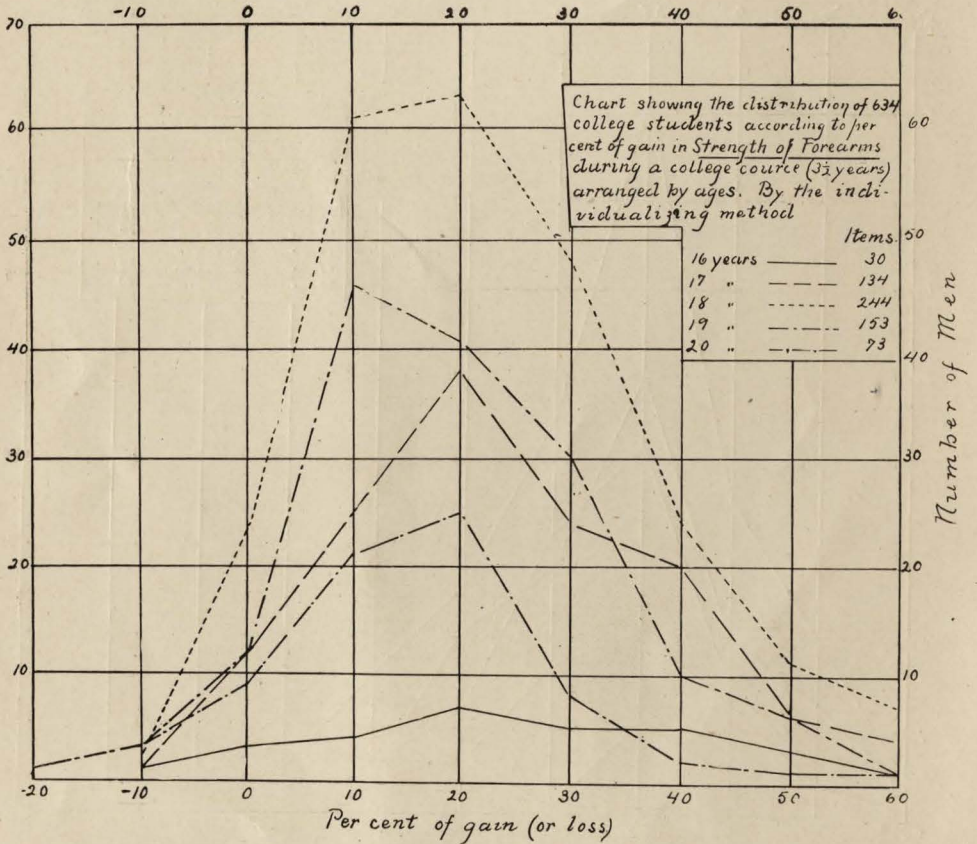 -10 0 10 20 30 40 50 6.
70
60
50
40
30
20
10
Chart showing the distribution of 634
college students according to per
cent of gain in Strength of Forearms
during a college cource (3½ years)
arranged by ages. By the indi-
vidualizing method
Items.
16 years 30
17 " 134
18 " 244
19 " 153
20 " 73
60
50
40
30
20
10
Number of Men
-20 -10 0 10 20 30 40 50 60
Per cent of gain (or loss)